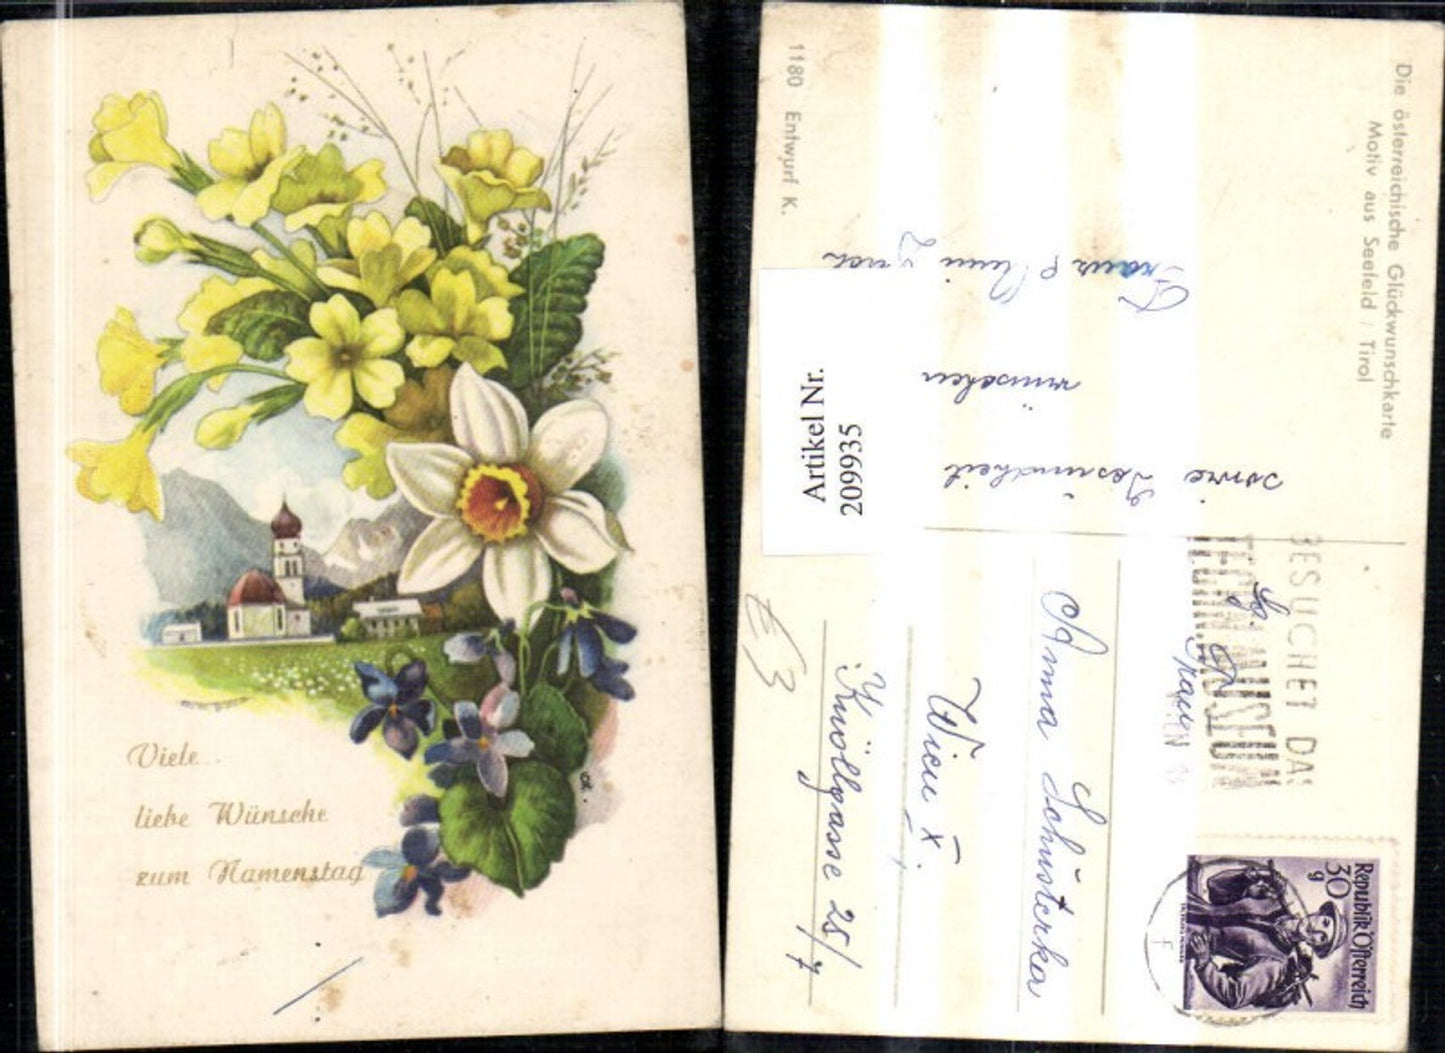 Viele
liebe Wünsche
zum Namenstag
1180 Entwurf K.
Die österreichische Glückwunschkarte
Motiv aus Seefeld / Tirol
Artikel Nr.
2099935
sowie Gesundheit
wünschen
Franz
BESUCHET DAS
TECHN. MUSEUM
WIEN
Frau
Anna Schusterka
Wien X.
Knöllgasse 25/7
Republik Österreich
30 g
E3